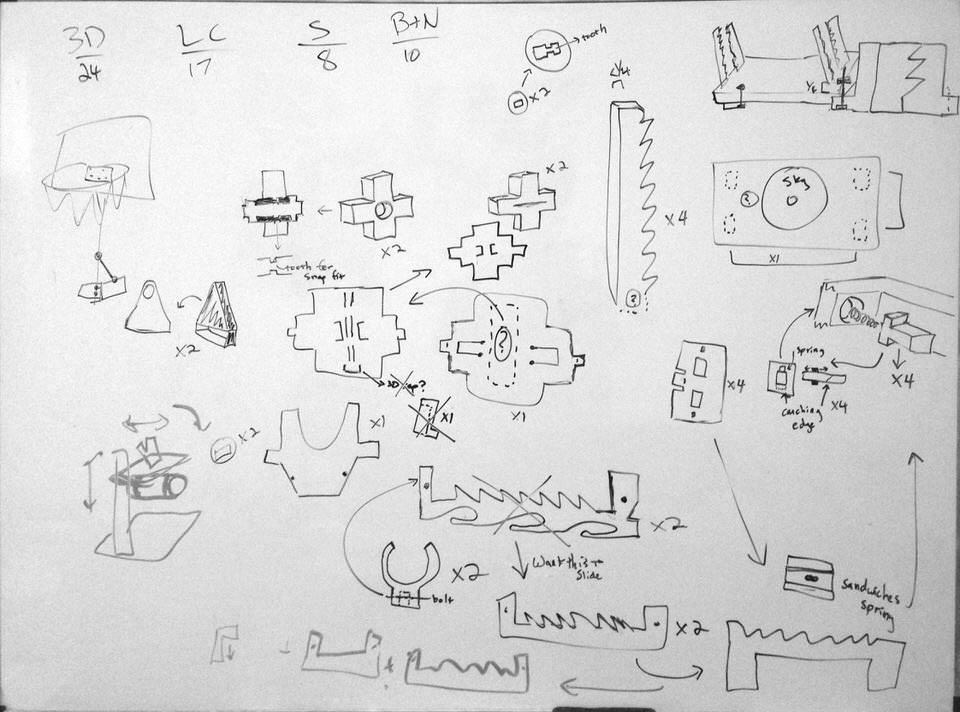 3D
24
LC
17
S
8
B+N
10
tooth
x2
1/4
x2
x2
tooth for
snap fit
x4
Sky
?
x1
x2
?
3D
x1
x1
?
x1
spring
x4
catching
edge
x4
x4
x2
x2
x2
bolt
Want this to
Slide
x2
sandwiches
spring